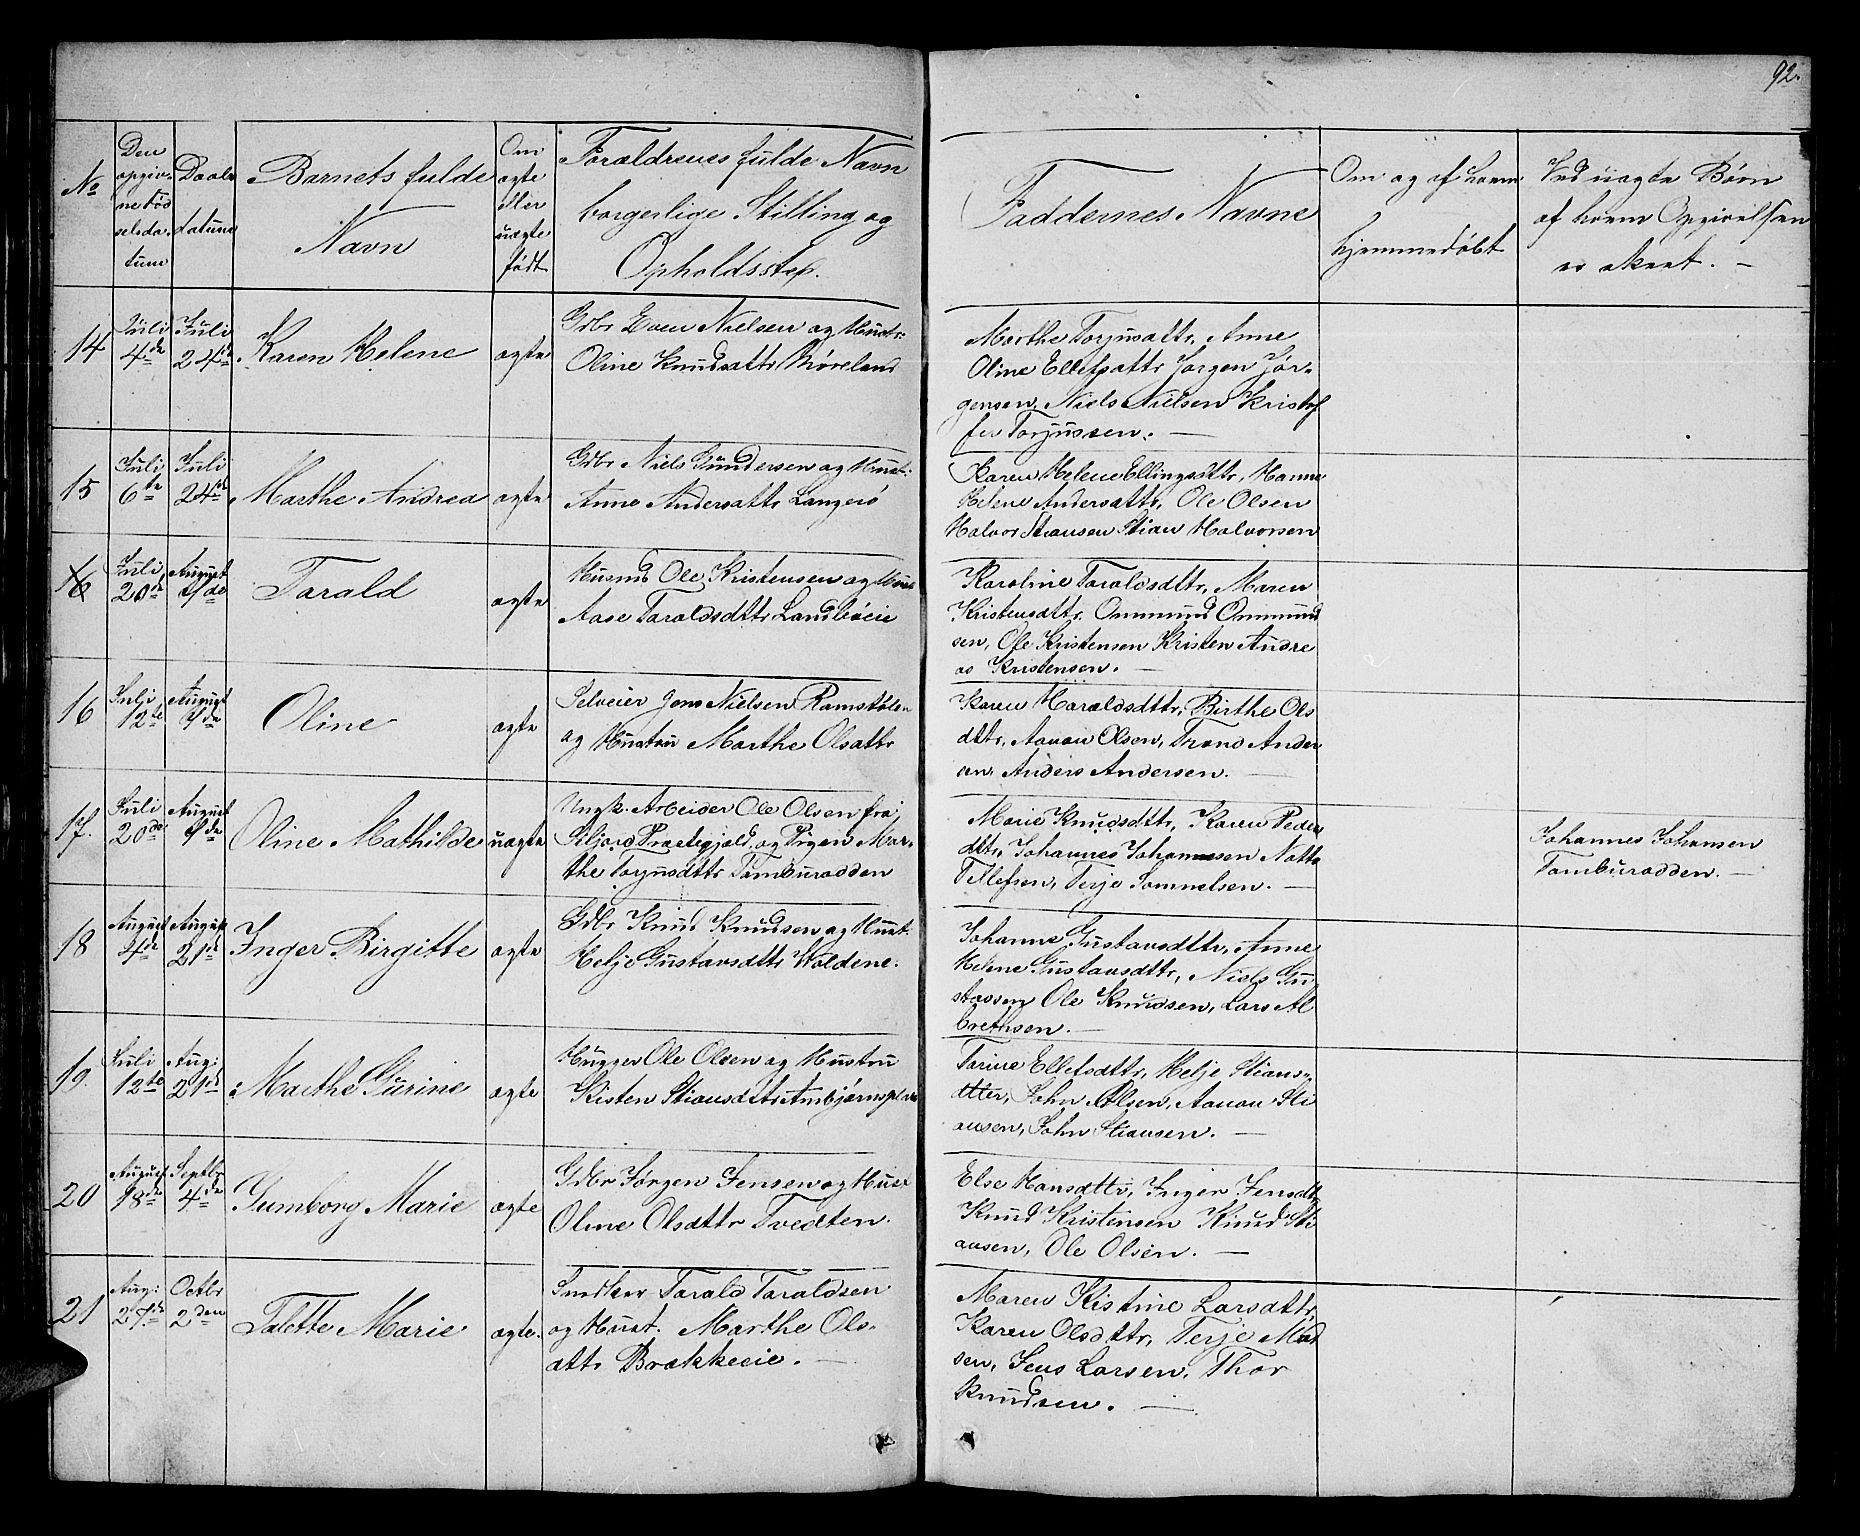 92.
No
Den
opgiv-
ne Fød
selsda-
tum
Daabs
datum
Barnets fulde
Navn
Om
ægte
eller
uægte
født
Forældrenes fulde Navn
borgerlige Stilling og
Opholdssted.
Faddernes Navne
Om og af hvem
hjemmedøbt
Ved uægte Børn
af hvem Opgivelsen
er skeet. —
14
Juli
4de
Juli
24de
Karen Helene
ægte
Gdbr Even Nielsen og Hustr:
Oline Knudsdttr Møreland
Marthe Torjusdttr, Anne
Oline Ellefsdttr Jørgen Jør-
gensen, Niels Nielsen Kristof
fer Torjussen. —
15
Juli
6te
Juli
24de
Marthe Andrea
ægte
Gdbr Niels Gundersen og Hust:
Anne Andersdttr Langerø
Karen Helene Ellingsdttr, Hanne
Helene Andersdttr, Ole Olsen
Halvor Stiansen Stian Halvorsen
16
Juli
20de
August
7de
Tarald
ægte
Husmd Ole Kristensen og Hust
Aase Taraldsdttr Landbøeie
Karoline Taraldsdttr, Maren
Kristensdttr. Ommund Ommund
sen, Ole Kristensen Kristen Andre
as Kristensen. —
16
Juli
12te
August
7de
Oline
ægte
Selveier Jens Nielsen Ramstølen
og Hustru Marthe Olsdttr
Karen Haraldsdttr, Birthe Ols
dttr, Aanon Olsen, Trond Ander
sen, Anders Andersen. —
17.
Juli
20de
August
7de
Oline Mathilde
uægte
Ungk. Arbeider Ole Olsen fra
Siljord Præstegjæld, og Pigen Mar-
the Torjusdttr Tamburodden
Marie Knudsdttr, Karen Peders
dttr, Johannes Johannesen Notto
Tellefsen, Terje Somnelsen. —
Johannes Johansen
Tamburodden. —
18
August
4de
August
21de
Inger Birgitte
ægte
Gdbr Knud Knudsen og Hust:
Helje Gustavsdttr Woldene.
Johanne Gustavsdttr, Anne
Helene Gustavsdttr, Niels Gu-
stavsen Ole Knudsen, Lars Al
brethsen. —
19.
Juli
12te
Aug:
21de
Marthe Gurine
ægte
Hugger Ole Olsen og Hustru
Kisten Stiansdttr Ambjørnsplads
Tarine Ellefsdttr, Helje Stians-
dtter, John Olsen, Aanon Sti
ansen, John Stiansen. —
20
August
18de
Septbr
4de
Gumborg Marie
ægte
Gdbr Jørgen Jensen og Hust
Oline Olsdttr Tvedten.
Else Hansdttr, Inger Jensdttr
Knud Kristensen Knud Sti
ansen, Ole Olsen. —
21
Aug:
27de
Octbr
2den
Talette Marie
ægte.
Snedker Tarald Taraldsen
og Hust. Marthe Ols-
dttr Brækkeeie. —
Maren Kistine Larsdttr,
Karen Olsdttr, Terje Mad
sen, Jens Larsen, Thor
Knudsen. —